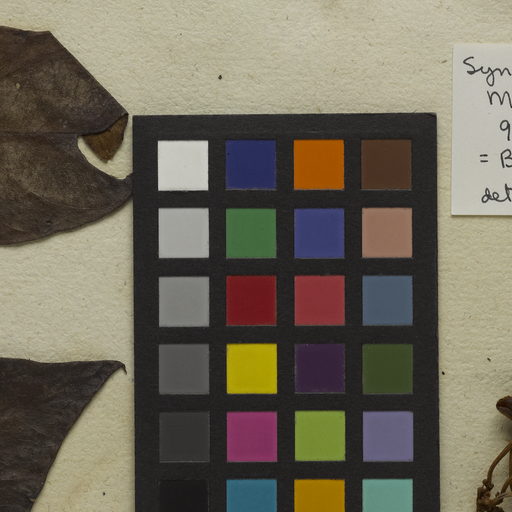 Syn
M
9
= B
det